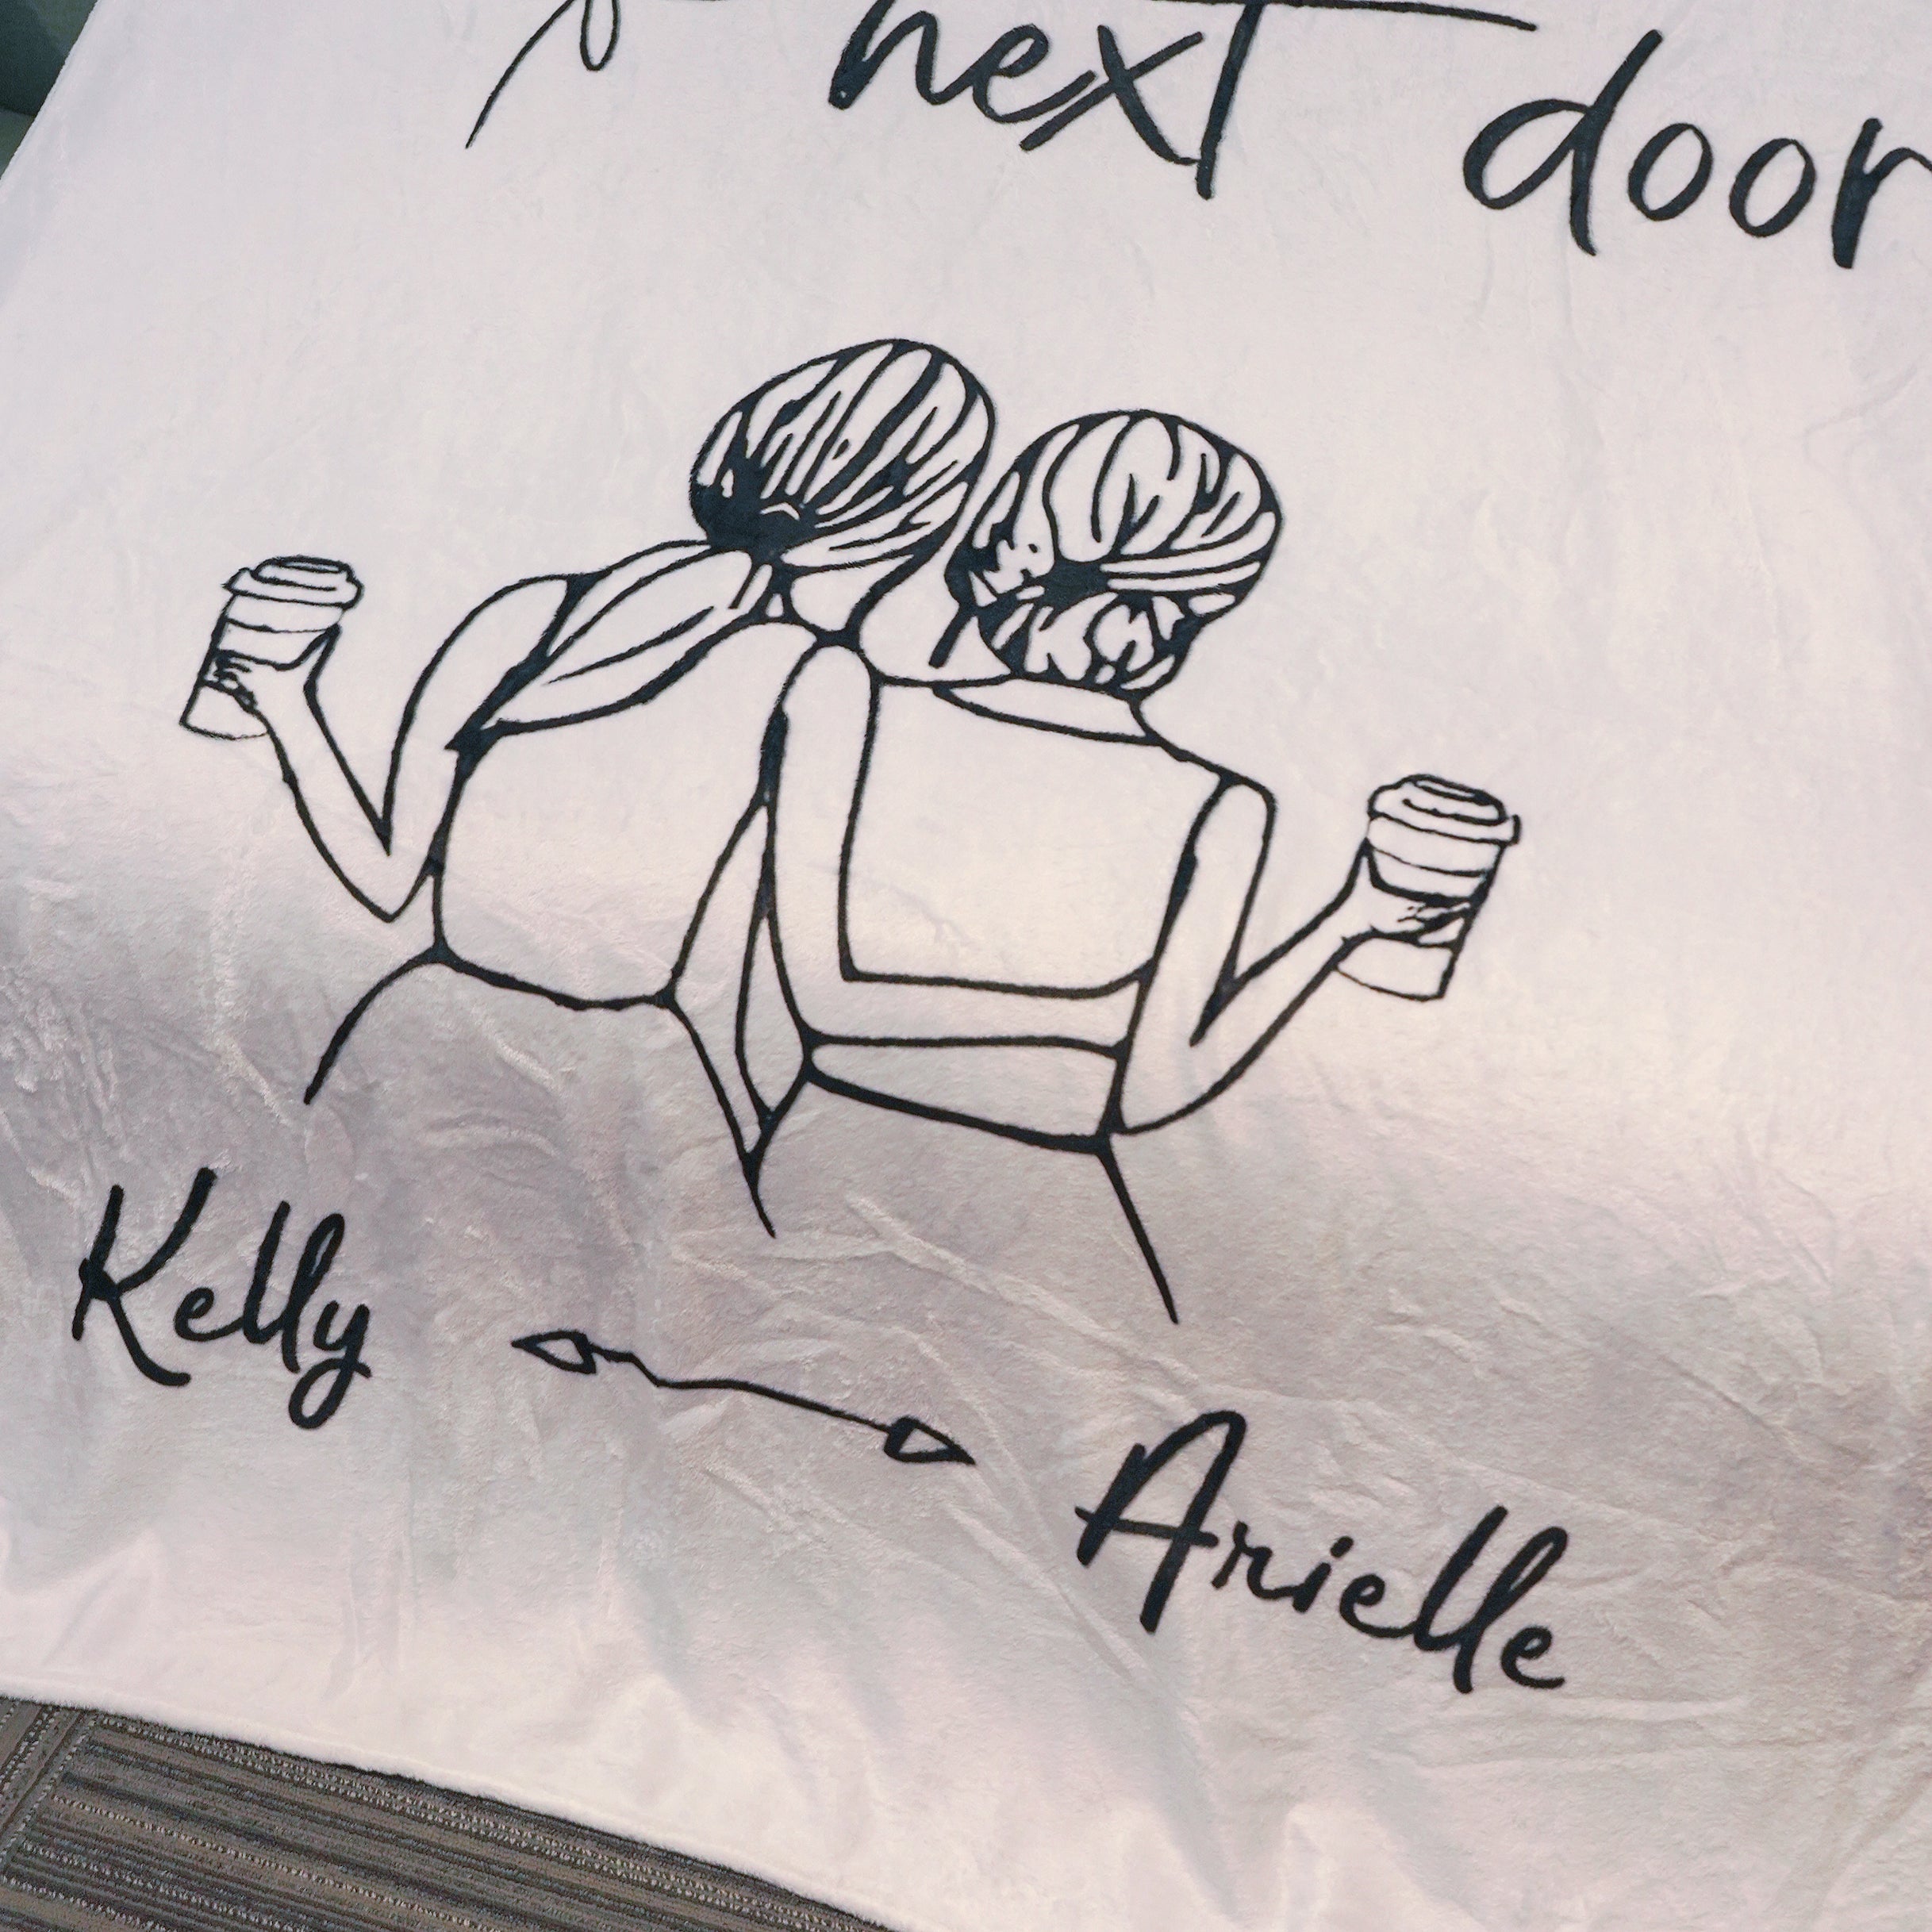 next door
Kelly
Arielle